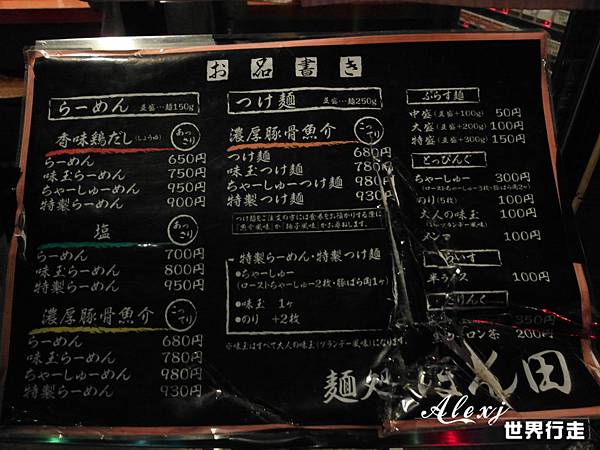 お品書き
らーめん 並盛…麺150g
香味鶏だし(しょうゆ) あっさり
らーめん 650円
味玉らーめん 750円
ちゃーしゅーめん 950円
特製らーめん 900円
塩 あっさり
らーめん 700円
味玉らーめん 800円
特製らーめん 950円
濃厚豚骨魚介 こってり
らーめん 680円
味玉らーめん 780円
ちゃーしゅーめん 980円
特製らーめん 930円
つけ麺 並盛…麺250g
濃厚豚骨魚介 こってり
つけ麺 680円
味玉つけ麺 780円
ちゃーしゅーつけ麺 980円
特製つけ麺 930円
つけ麺をご注文の方には食券をお預かりする際に
「魚介風味」か「柚子風味」かお尋ねします。
特製らーめん・特製つけ麺
●ちゃーしゅー
(ローストちゃーしゅー2枚・豚ばら肉1ヶ)
●味玉 1ヶ
●のり +2枚
※味玉はすべて大人の味玉(ブランデー風味)になります。
ぷらす麺
中盛(並盛+100g) 50円
大盛(並盛+200g) 100円
特盛(並盛+300g) 150円
とっぴんぐ
ちゃーしゅー 300円
(ローストちゃーしゅー3枚・豚ばら肉2ヶ)
のり(5枚) 100円
大人の味玉 100円
(ブランデー風味)
メンマ 100円
らいす
半ライス 100円
どりんく
350円
ロン茶 200円
麺処 ほん田
Alexj
世界行走